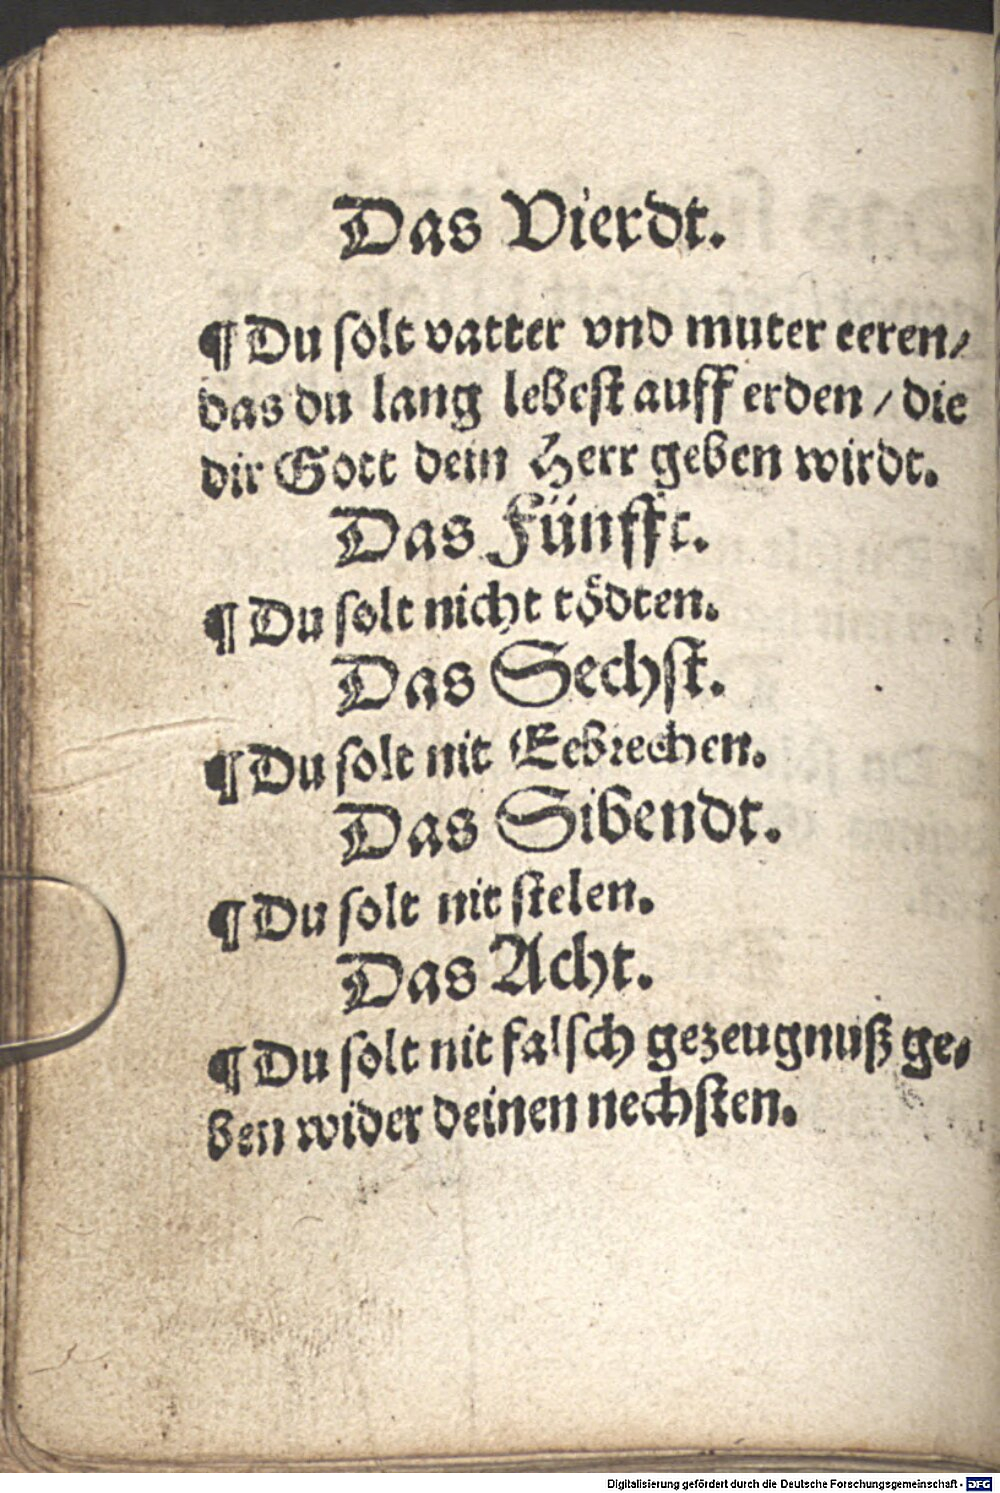 Das Vierdt.
¶ Du solt vatter vnd muter eeren/
das du lang lebest auff erden / die
dir Gott dein Herr geben wirdt.
Das Fünfft.
¶ Du solt nicht tödten.
Das Sechst.
¶ Du solt nit Eebrechen.
Das Sibendt.
¶ Du solt nit stelen.
Das Acht.
¶ Du solt nit falsch gezeugnuß ge⸗
ben wider deinen nechsten.
Digitalisierung gefördert durch die Deutsche Forschungsgemeinschaft - DFG